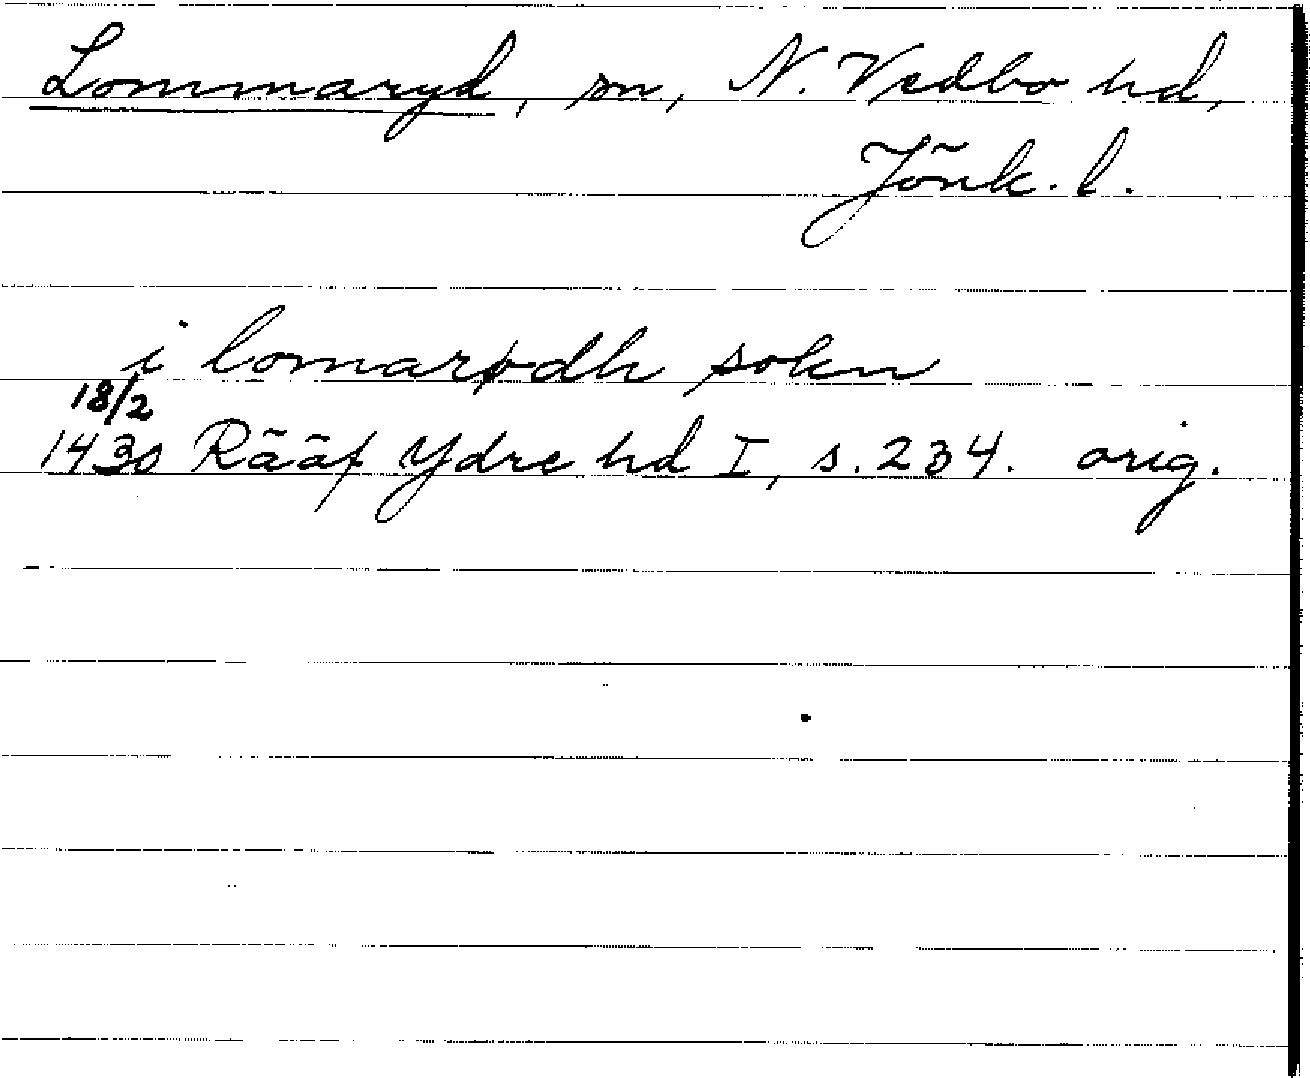 Lommaryd, sn, N. Vedbo hd,
Jönk. l.
i lomarødh sokn
18/2
1430 Rääf Ydre hd I, s. 234. orig.